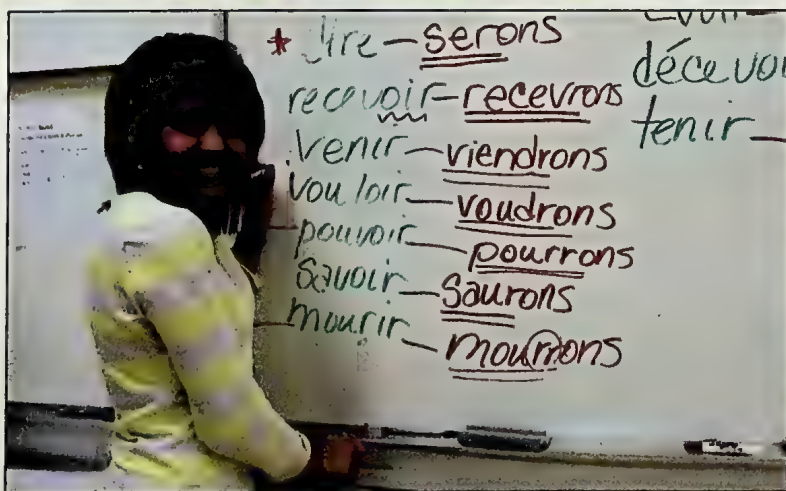 * être - serons
recevoir - recevrons
venir - viendrons
vouloir - voudrons
pouvoir - pourrons
savoir - saurons
mourir - mourrons
décevoi
tenir -